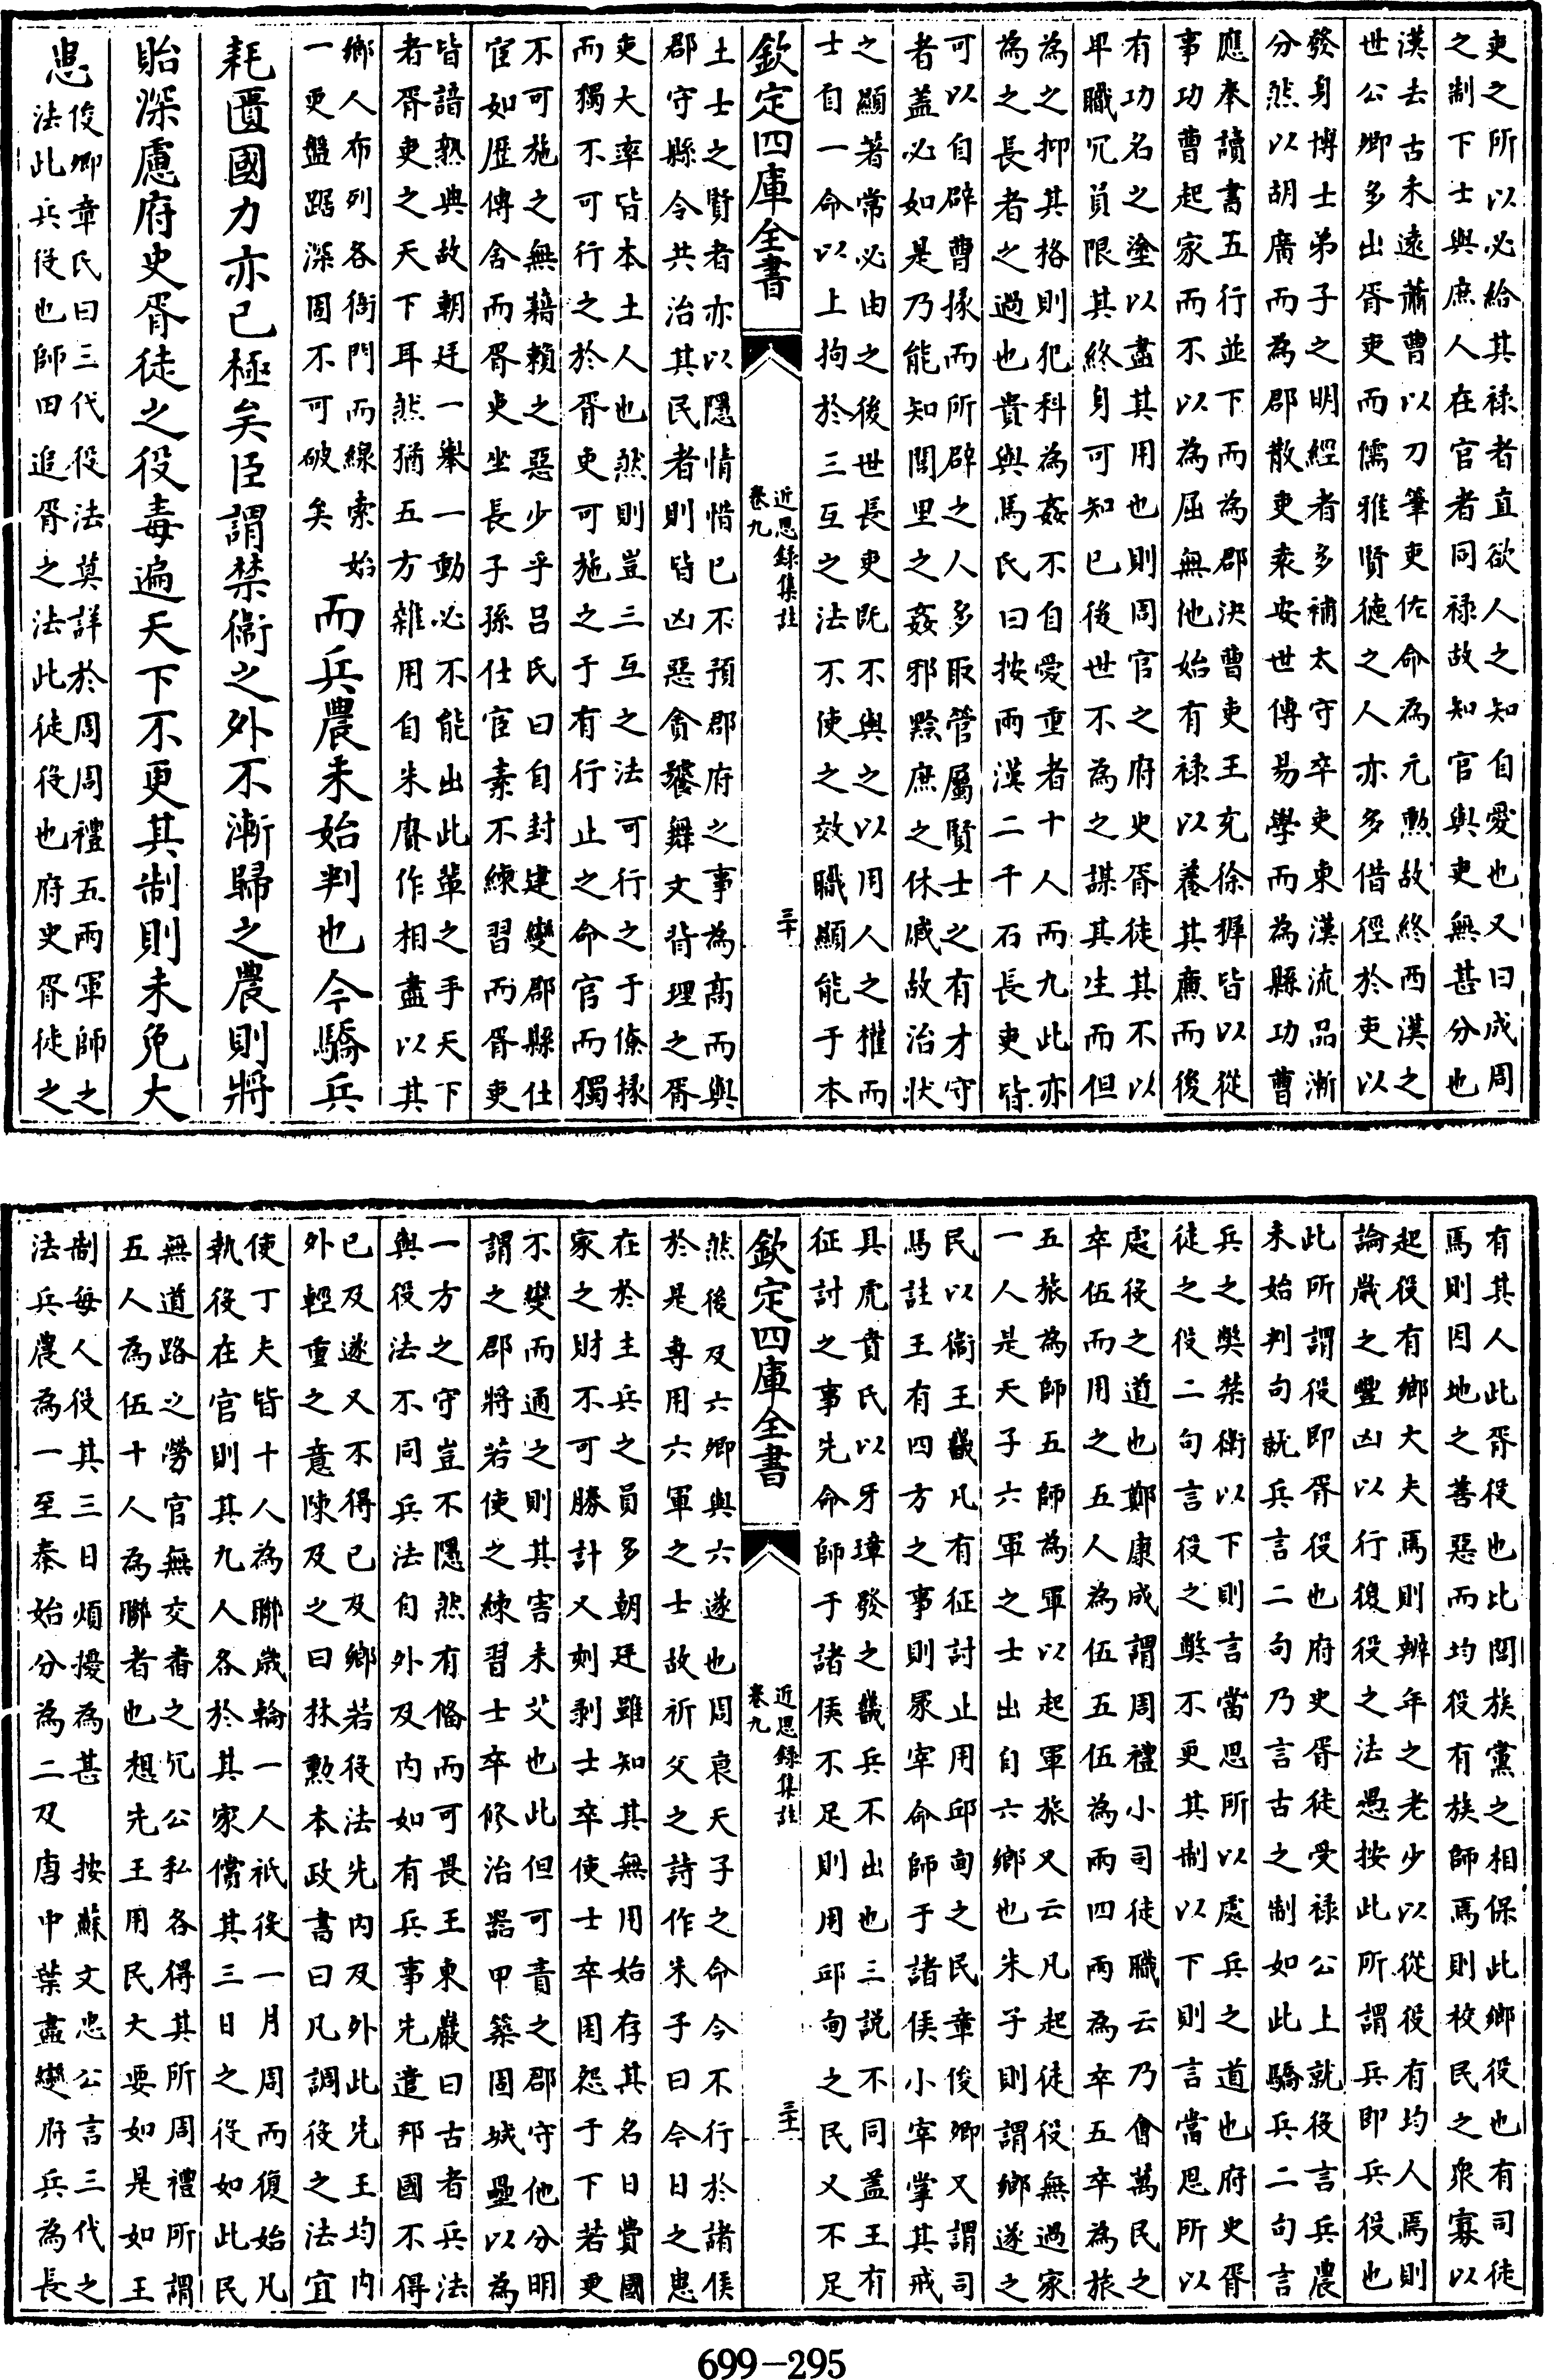 吏之所以必給其祿者直欲人之知自愛也又曰成周
之制下士與庶人在官者同祿故知官與吏無甚分也
漢去古未遠蕭曹以刀筆吏佐命為元勲故終西漢之
世公卿多出胥吏而儒雅賢徳之人亦多借徑於吏以
發身博士弟子之明經者多補太守卒吏東漢流品漸
分然以胡廣而為郡散吏袁安世傳易學而為縣功曹
應奉讀書五行並下而為郡決曹吏王充徐穉皆以從
事功曹起家而不以為屈無他始有祿以養其廉而後
有功名之塗以盡其用也則周官之府史胥徒其不以
卑職冗員限其終身可知已後世不為之謀其生而但
為之抑其格則犯科為姦不自愛重者十人而九此亦
為之長者之過也貴與馬氏曰按兩漢二千石長吏皆
可以自辟曹掾而所辟之人多取管屬賢士之有才守
者蓋必如是乃能知閭里之姦邪黔庶之休戚故治狀
之顯著常必由之後世長吏既不與之以用人之權而
士自一命以上拘於三互之法不使之效職顯能于本
欽定四庫全書
近思録集註
卷九
三十
土士之賢者亦以隱情惜已不預郡府之事為高而與
郡守縣令共治其民者則皆凶惡貪饕舞文背理之胥
吏大率皆本土人也然則豈三互之法可行之于僚掾
而獨不可行之於胥吏可施之于有行止之命官而獨
不可施之無藉賴之惡少乎呂氏曰自封建變郡縣仕
宦如歷傳舍而胥吏坐長子孫仕宦素不練習而胥吏
皆諳熟典故朝廷一舉一動必不能出此輩之手天下
者胥吏之天下耳然猶五方雜用自朱賡作相盡以其
鄉人布列各衙門而線索始
一更盤踞深固不可破矣
而兵農未始判也今驕兵
耗匱國力亦已極矣臣謂禁衛之外不漸歸之農則將
貽深慮府史胥徒之役毒遍天下不更其制則未免大
患
俊卿章氏曰三代役法莫詳於周周禮五兩軍師之
法此兵役也師田追胥之法此徒役也府史胥徒之
有其人此胥役也比閭族黨之相保此鄉役也有司徒
焉則因地之善惡而均役有族師焉則校民之衆寡以
起役有鄉大夫焉則辨年之老少以從役有均人焉則
論歲之豐凶以行復役之法愚按此所謂兵即兵役也
此所謂役即胥役也府史胥徒受祿公上就役言兵農
未始判句就兵言二句乃言古之制如此驕兵二句言
兵之獘禁衛以下則言當思所以處兵之道也府史胥
徒之役二句言役之獘不更其制以下則言當思所以
處役之道也鄭康成謂周禮小司徒職云乃會萬民之
卒伍而用之五人為伍五伍為兩四兩為卒五卒為旅
五旅為師五師為軍以起軍旅又云凡起徒役無過家
一人是天子六軍之士出自六鄉也朱子則謂鄉遂之
民以衛王畿凡有征討止用邱甸之民章俊卿又謂司
馬註王有四方之事則冡宰命師于諸侯小宰掌其戒
具虎賁氏以牙璋發之畿兵不出也三説不同葢王有
征討之事先命師于諸侯不足則用邱甸之民又不足
欽定四庫全書
近思録集註
卷九
三十一
然後及六鄉與六遂也周衰天子之命今不行於諸侯
於是專用六軍之士故祈父之詩作朱子曰今日之患
在於主兵之員多朝廷雖知其無用始存其名日費國
家之財不可勝計又刻剥士卒使士卒困怨于下若更
不變而通之則其害未艾也此但可責之郡守他分明
謂之郡將若使之練習士卒修治器甲築固城壘以為
一方之守豈不隱然有備而可畏王東巖曰古者兵法
與役法不同兵法自外及内如有兵事先遣邦國不得
已及遂又不得已及鄉若役法先内及外此先王均内
外輕重之意陳及之曰林勲本政書曰凡調役之法宜
使丁夫皆十人為聯歲輪一人祗役一月周而復始凡
執役在官則其九人各於其家償其三日之役如此民
無道路之勞官無交番之冗公私各得其所周禮所謂
五人為伍十人為聯者也想先王用民大要如是如王
制每人役其三日煩擾為甚 按蘇文忠公言三代之
法兵農為一至秦始分為二及唐中葉盡變府兵為長
699-295